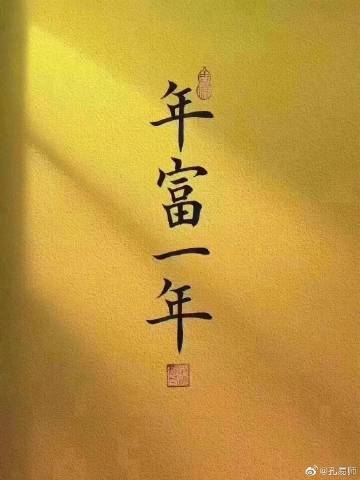 年富一年
@孔易师